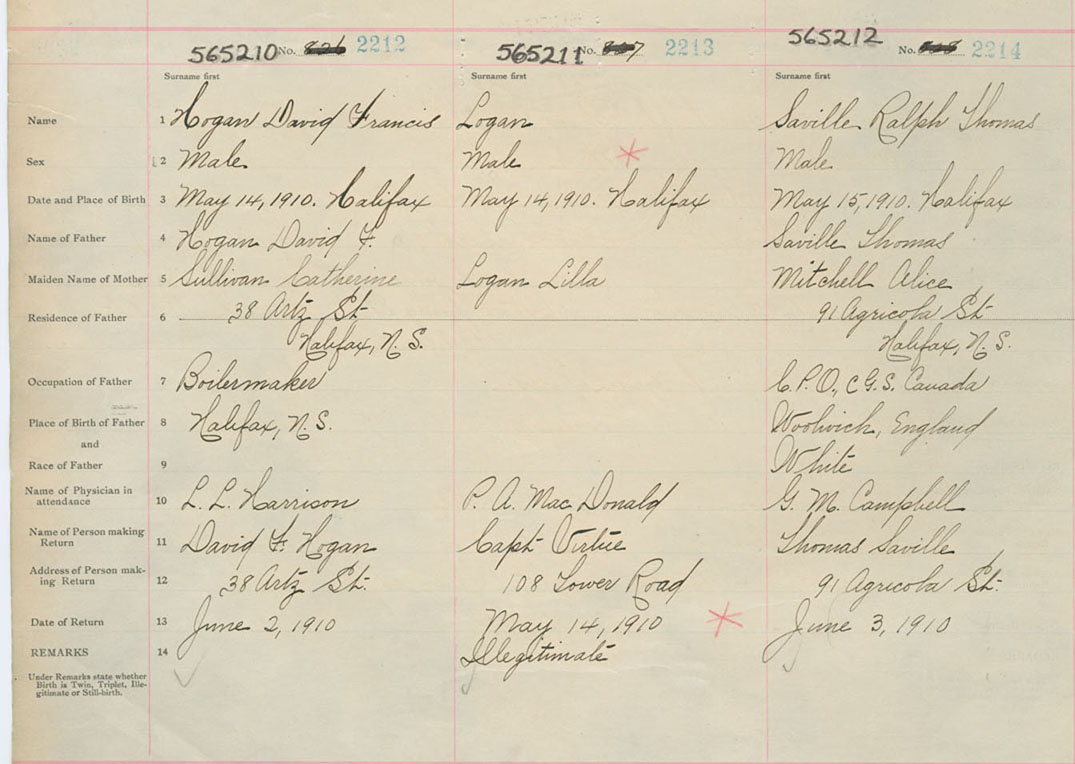 565210 No. 2212 565211 No. 2213 565212 No. 2214
Surname first Surname first Surname first
Name 1 Hogan David Francis Logan Saville Ralph Thomas
Sex 2 Male Male Male
Date and Place of Birth 3 May 14, 1910. Halifax May 14, 1910. Halifax May 15, 1910. Halifax
Name of Father 4 Hogan David F. Saville Thomas
Maiden Name of Mother 5 Sullivan Catherine Logan Lilla Mitchell Alice
Residence of Father 6 38 Artz St 91 Agricola St
Halifax, N.S. Halifax, N.S.
Occupation of Father 7 Boilermaker C.P.O., C.G.S. Canada
Place of Birth of Father 8 Halifax, N.S. Woolwich, England
and
Race of Father 9 White
Name of Physician in
attendance 10 L. L. Harrison P. A. Mac Donald G. M. Campbell
Name of Person making
Return 11 David F. Hogan Capt Virtue Thomas Saville
Address of Person mak-
ing Return 12 38 Artz St. 108 Lower Road 91 Agricola St.
Date of Return 13 June 2, 1910 May 14, 1910 June 3, 1910
REMARKS 14 Illegitimate
Under Remarks state whether
Birth is Twin, Triplet, Ille-
gitimate or Still-birth.